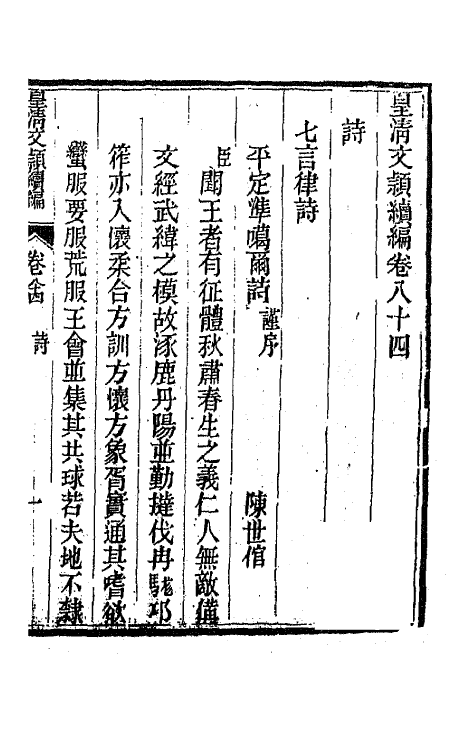 皇淸文頴續編卷八十四
詩
七言律詩
平定準噶爾詩謹序 陳世倌
臣聞王者有征體秋肅春生之義仁人無敵備
文經武緯之模故涿鹿丹陽並勤撻伐冉駹邛
筰亦入懷柔台方訓方懷方象胥實通其嗜欲
蠻服要服荒服王會並集其共球若夫地不隸
皇淸文頴續編 卷八十四 詩 一